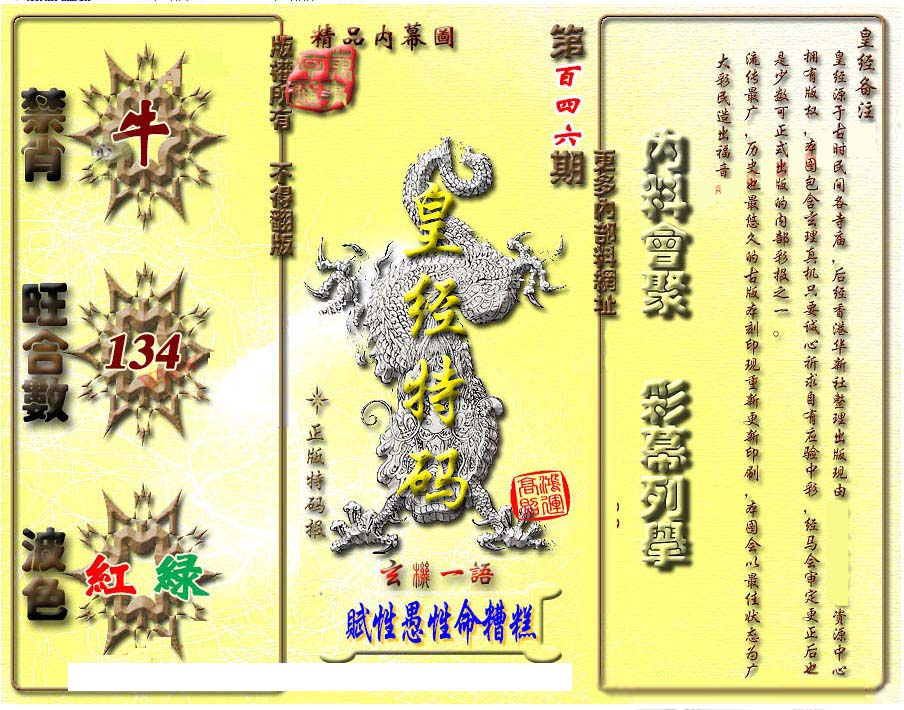 禁肖
牛
旺合數
134
波色
紅 綠
版權所有 不得翻版
精品内幕圖
第百四六期
皇经特码
正版特码报
鴻運高照
玄機一語
賦性愚性命糟糕
更多内部料網址
内料會聚
彩幕列擧
皇经备注
皇经源于古时民间各寺庙，后经香港华新社整理出版现由 资源中心
拥有版权，本图包含玄理真机只要诚心祈求自有应验中彩，经马会审定更正后也
是少数可正式出版的内部彩报之一。
流传最广，历史也最悠久的古版本刻印现重新更新印刷，本图会以最佳状态为广
大彩民造出福音